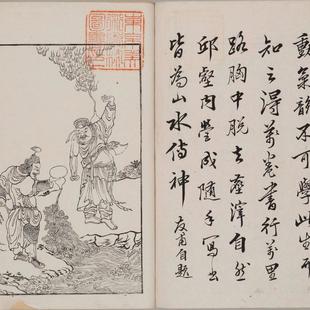 動氣韻不可學此生而
知之得萬卷書行萬里
路胸中脫去塵滓自然
邱壑内營成隨手寫出
皆為山水傳神
甫自題